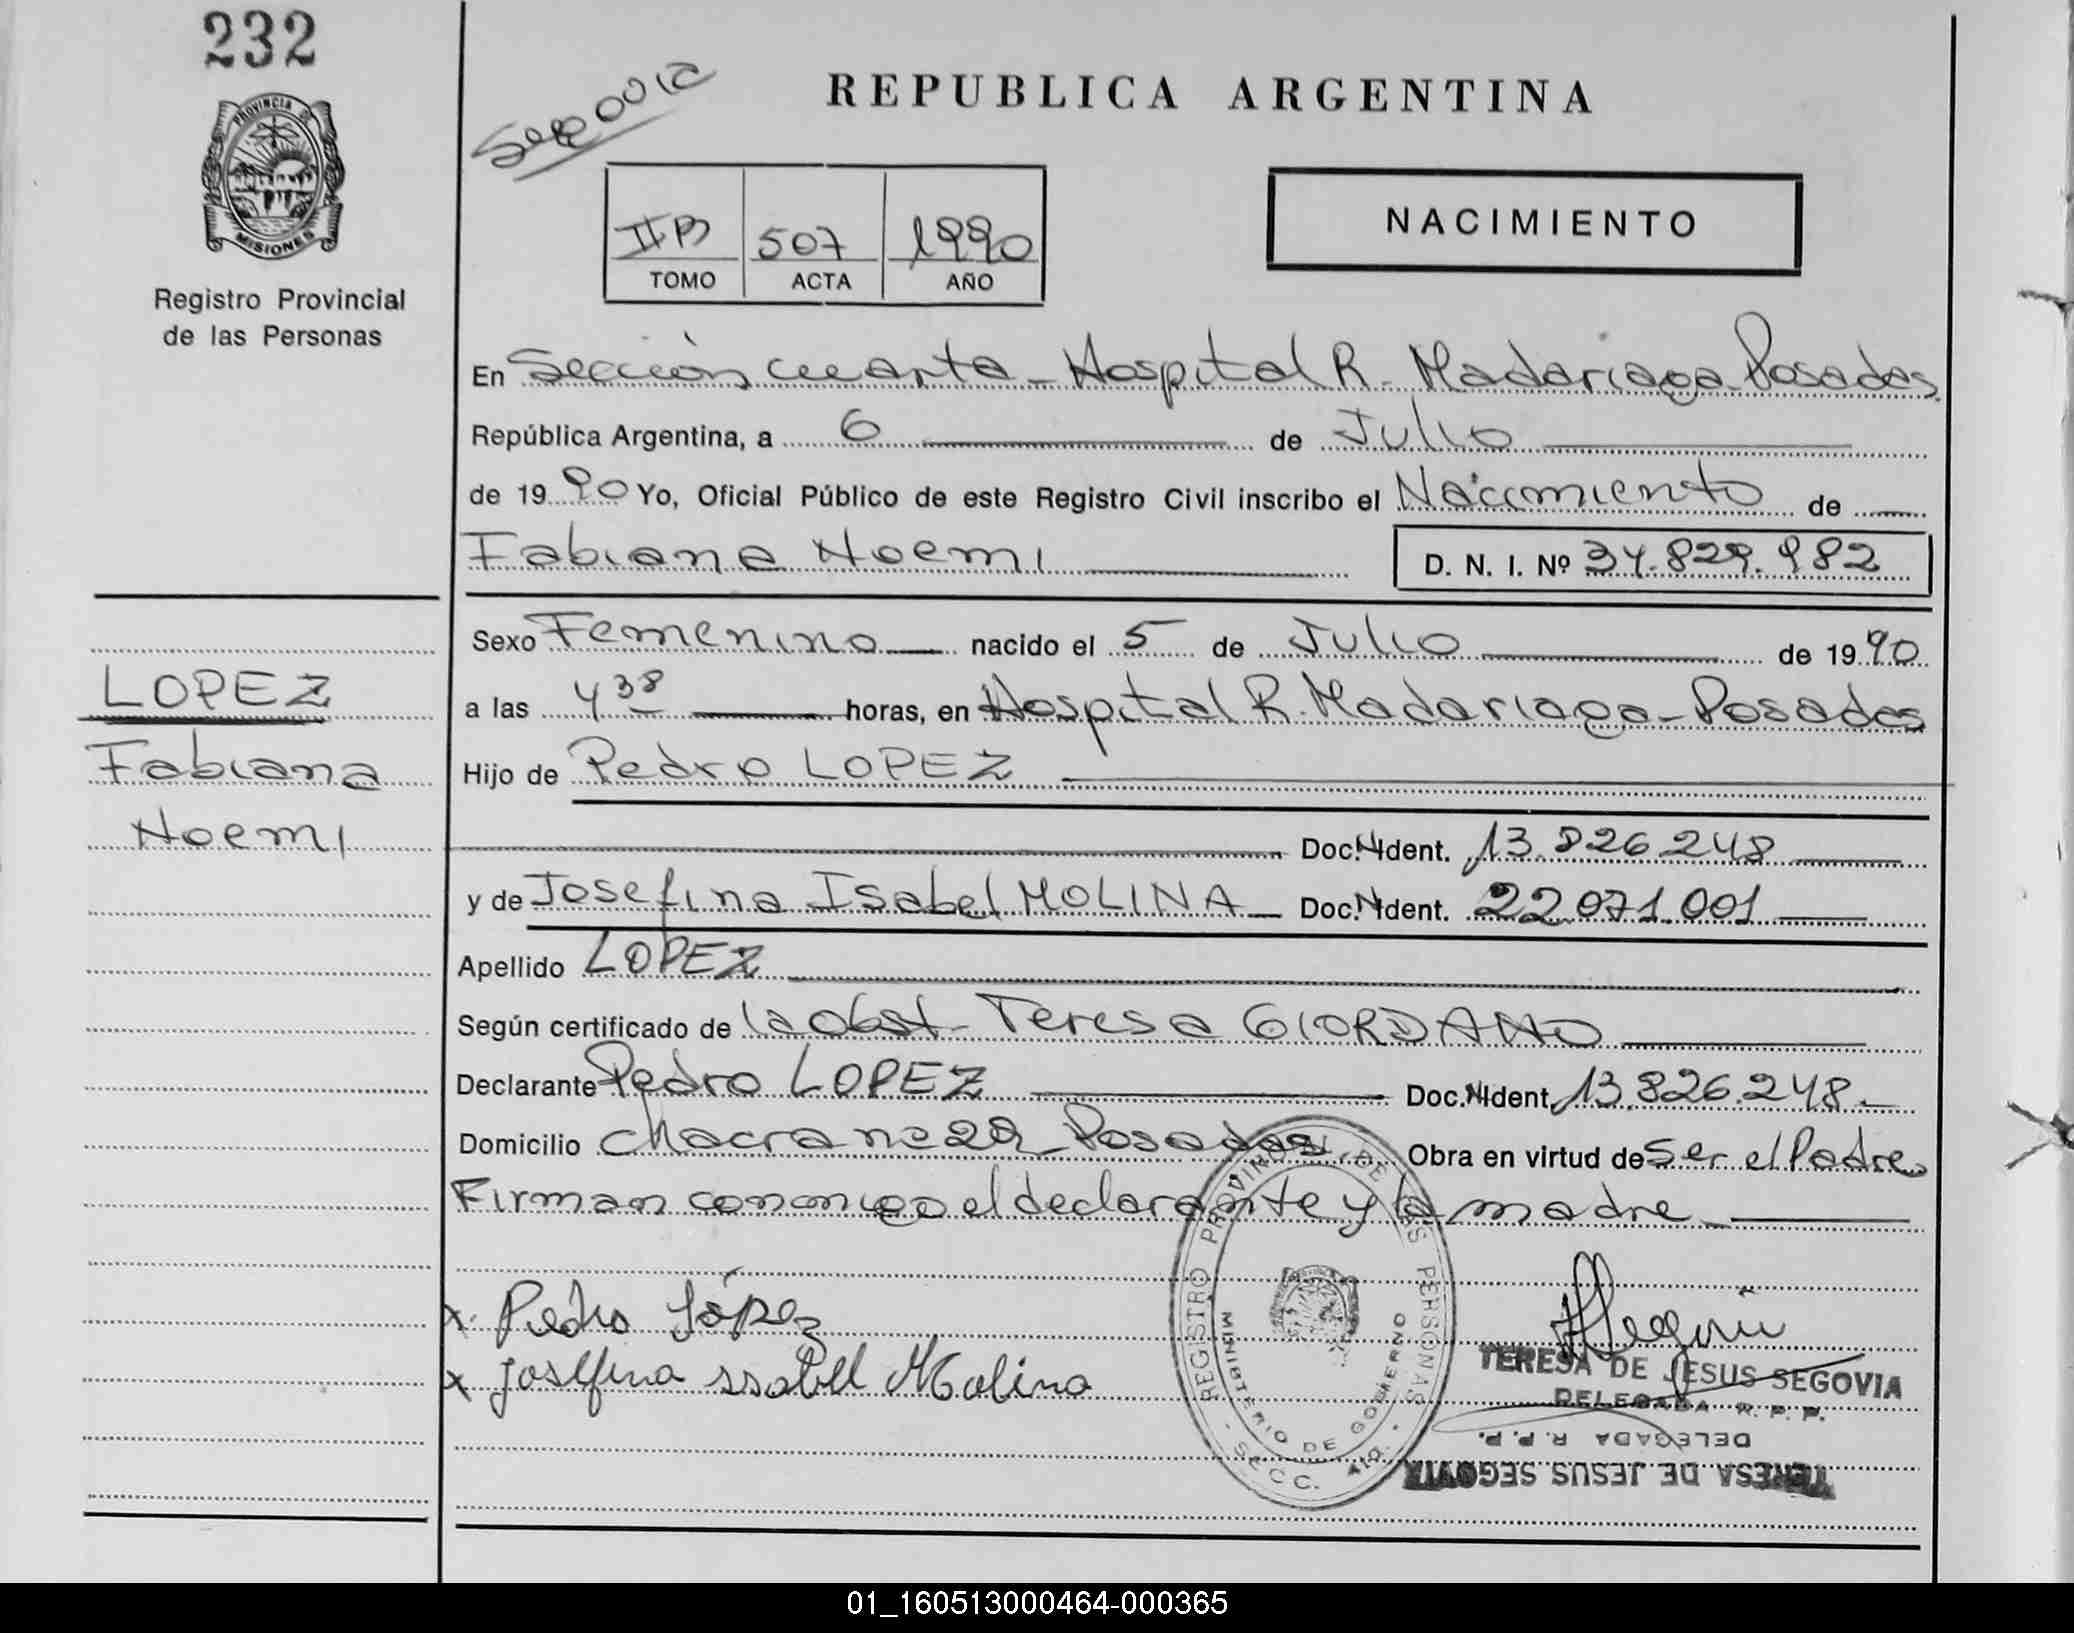 232
REPUBLICA ARGENTINA
PROVINCIA DE
MISIONES
Registro Provincial
de las Personas
NACIMIENTO
IIB 507 1990
TOMO ACTA AÑO
En Sección cuarta - Hospital R. Madariaga Posadas
República Argentina, a 6 de Julio
de 1990 Yo, Oficial Público de este Registro Civil inscribo el Nacimiento de
Fabiana Noemi D. N. I. Nº 34.829.982
Sexo Femenino nacido el 5 de Julio de 1990
LOPEZ
Fabiana
Noemi
a las 4 38 horas, en Hospital R. Madariaga - Posadas
Hijo de Pedro LOPEZ
Doc. N Ident. 13.826.248
y de Josefina Isabel MOLINA Doc. N Ident. 22.071.001
Apellido LOPEZ
Según certificado de la obst. Teresa GIORDANO
Declarante Pedro LOPEZ Doc. N Ident. 13.826.248.-
Domicilio Chacra nº 29 - Posadas Obra en virtud de Ser el Padre
Firman conmigo el declarante y la madre
x Pedro López
x Josefina Issabel Molina
REGISTRO PROVINCIAL DE LAS PERSONAS
MINISTERIO DE GOBIERNO
SECC. 4ta.
TERESA DE JESUS SEGOVIA
DELEGADA R. P. P.
DELEGADA R. P. P.
TERESA DE JESUS SEGOVIA
01_160513000464-000365